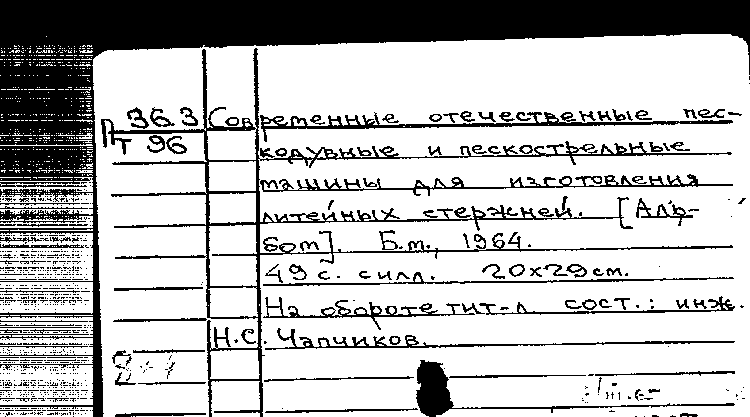 П 36.3 Современные отечественные пес-
Т 96 кодувные и пескострельные
машины для изготовления
литейных стержней. [Аль-
бом]. Б.м., 1964.
49 с. силл. 20х29см.
На обороте тит-л. сост.: инж.
Н.С. Чапчиков.